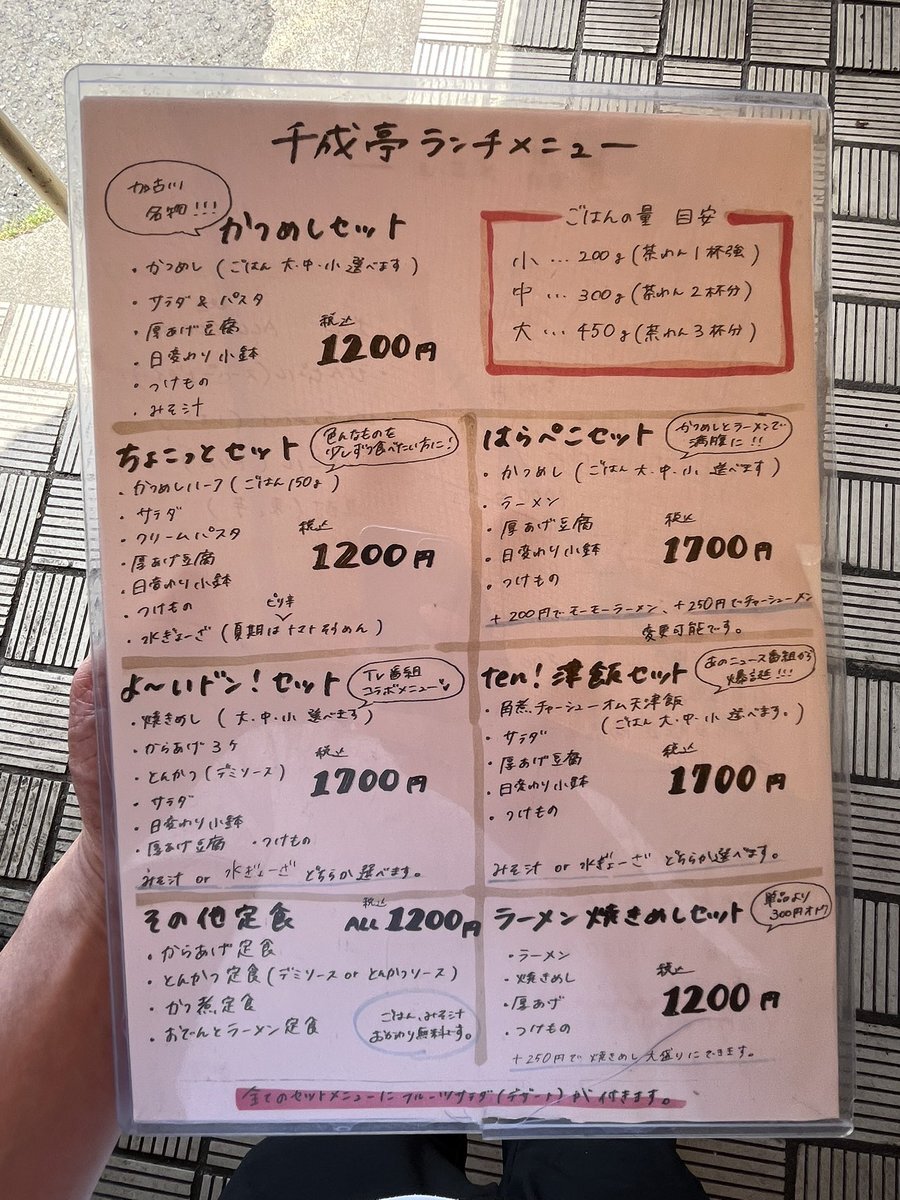 千成亭ランチメニュー
加古川
名物!!!
かつめしセット
・かつめし(ごはん大・中・小選べます)
・サラダ&パスタ
・厚あげ豆腐
・日変わり小鉢
・つけもの
・みそ汁
税込
1200円
ごはんの量 目安
小…200g(茶わん1杯強)
中…300g(茶わん2杯分)
大…450g(茶わん3杯分)
ちょこっとセット
色んなものを
少しずつ食べたい方に!
・かつめしハーフ(ごはん150g)
・サラダ
・クリームパスタ
・厚あげ豆腐
・日変わり小鉢
・つけもの
・水ぎょーざ(夏期はトマトそうめん)
ピリ辛
税込
1200円
はらぺこセット
かつめしとラーメンで
満腹に!!
・かつめし(ごはん大・中・小選べます)
・ラーメン
・厚あげ豆腐
・日変わり小鉢
・つけもの
税込
1700円
+200円でモーモーラーメン、+250円でチャーシューメン
変更可能です。
よ〜いドン!セット
TV番組
コラボメニュー
・焼きめし(大・中・小選べます)
・からあげ3ケ
・とんかつ(デミソース)
・サラダ
・日変わり小鉢
・厚あげ豆腐 ・つけもの
税込
1700円
みそ汁or水ぎょーざどちらか選べます。
ten!津飯セット
あのニュース番組から
爆誕!!!
・角煮チャーシューオム天津飯
(ごはん大・中・小選べます。)
・サラダ
・厚あげ豆腐
・日変わり小鉢
・つけもの
税込
1700円
みそ汁or水ぎょーざどちらか選べます。
その他定食
税込
ALL 1200円
・からあげ定食
・とんかつ定食(デミソースorとんかつソース)
・かつ煮定食
・おでんとラーメン定食
ごはん、みそ汁
おかわり無料です。
ラーメン焼きめしセット
単品より
300円オトク
・ラーメン
・焼きめし
・厚あげ
・つけもの
税込
1200円
+250円で焼きめし大盛りにできます。
全てのセットメニューにフルーツサラダ(デザート)が付きます。